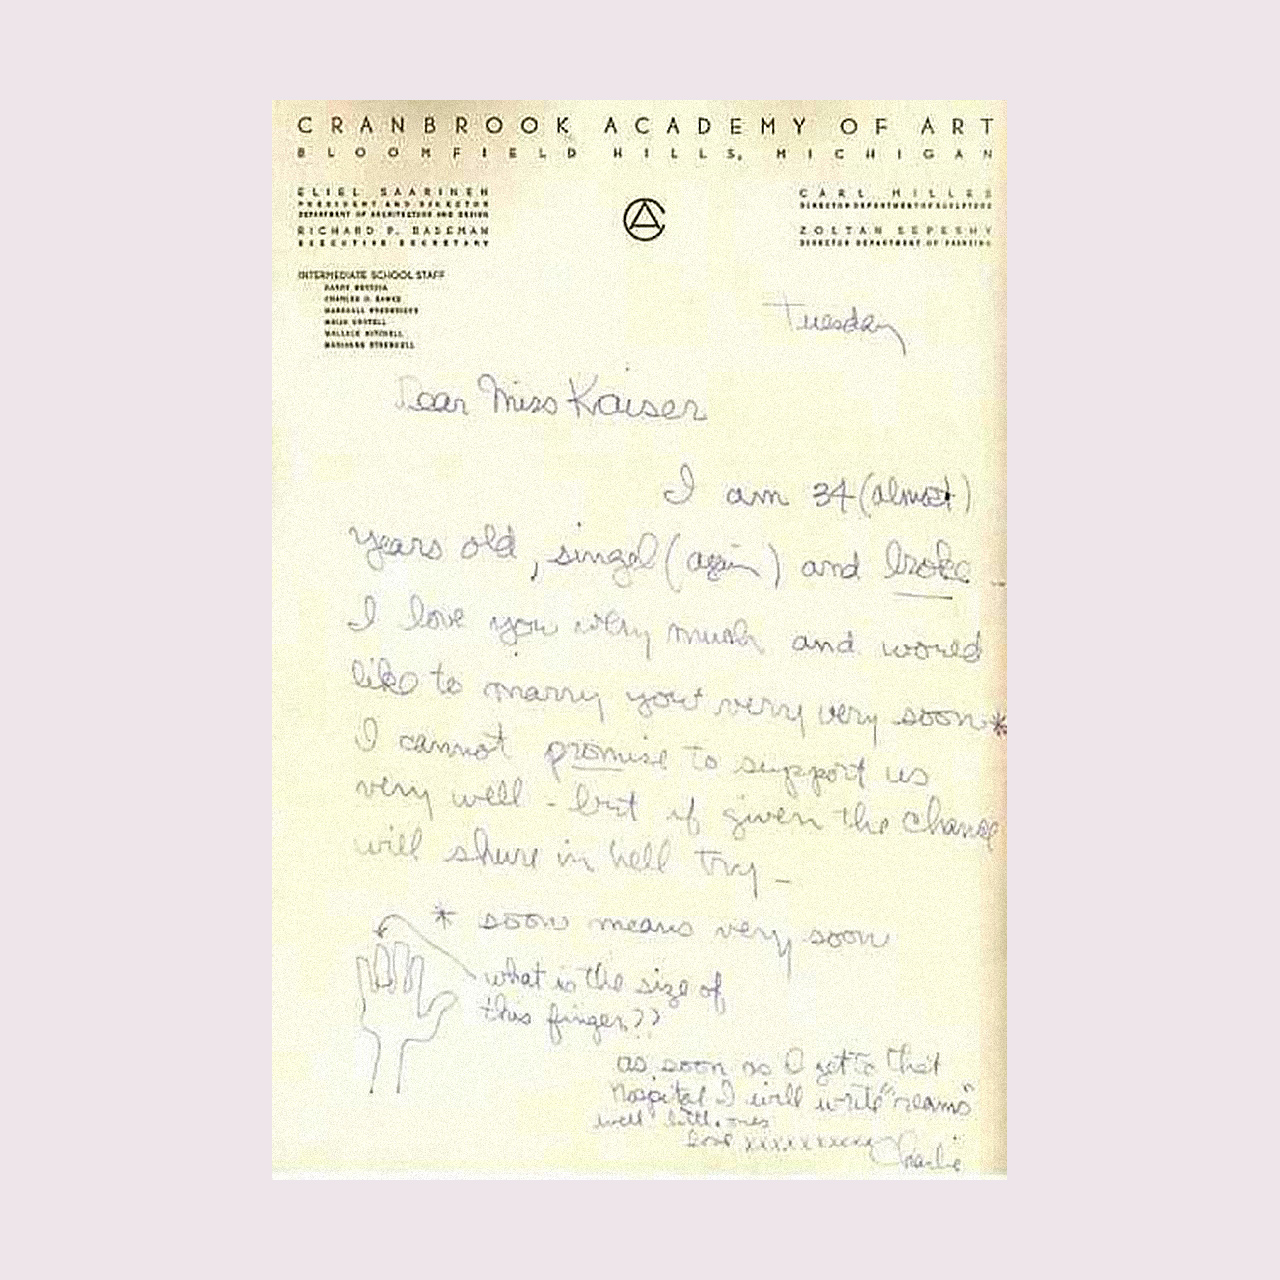 CRANBROOK ACADEMY OF ART
BLOOMFIELD HILLS, MICHIGAN
ELIEL SAARINEN
PRESIDENT AND DIRECTOR
DEPARTMENT OF ARCHITECTURE AND DESIGN
RICHARD P. RASEMAN
EXECUTIVE SECRETARY
CARL MILLES
DIRECTOR DEPARTMENT OF SCULPTURE
ZOLTAN SEPESHY
DIRECTOR DEPARTMENT OF PAINTING
INTERMEDIATE SCHOOL STAFF
HARRY BERTOIA
CHARLES O. EAMES
MARSHALL FREDERICKS
MAIJA GROTELL
WALLACE MITCHELL
MARIANNE STRENGELL
Tuesday
Dear Miss Kaiser
I am 34 (almost)
years old, singel (again) and broke —
I love you very much and would
like to marry you very very soon*
I cannot promise to support us
very well - but if given the chance
will shure in hell try —
* soon means very soon
what is the size of
this finger??
as soon as I get to that
hospital I will write "reams"
well little ones
love xxxxxxxxxx Charlie